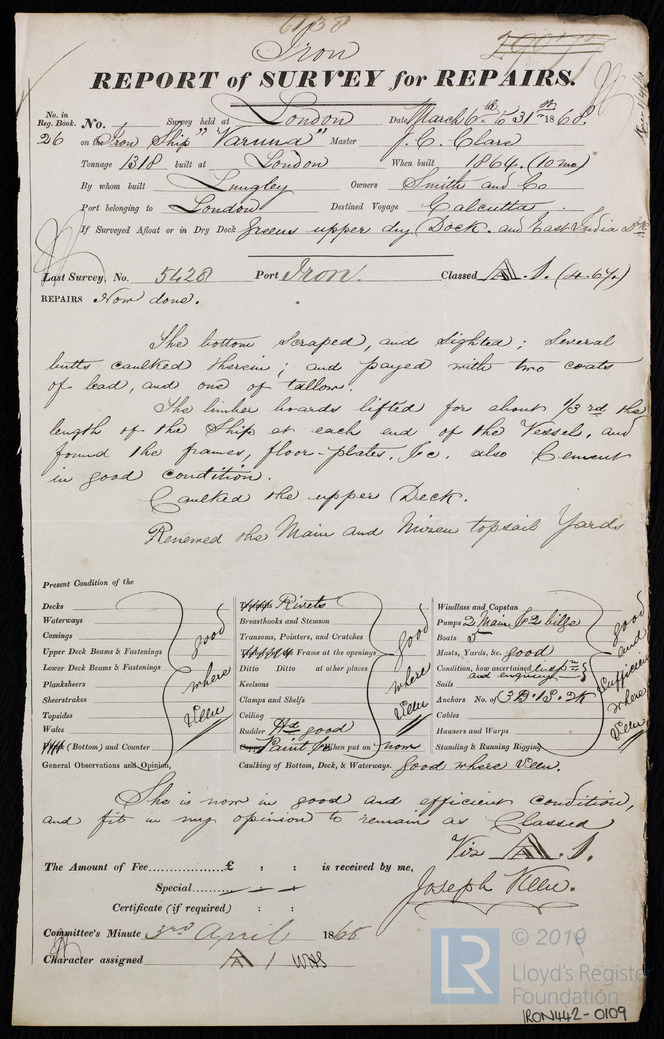 6138
Iron
REPORT of SURVEY for REPAIRS.
No. in Reg. Book.
26
No. Survey held at London Date March 6th to 31st 1868.
on the Iron Ship "Varuna" Master J. C. Clare
Tonnage 1318 built at London When built 1864. (10 mo)
By whom built Lungley Owners Smith and Co
Port belonging to London Destined Voyage Calcutta
If Surveyed Afloat or in Dry Dock Greens upper dry Dock. and East India Dk
Last Survey, No. 5428 Port Iron. Classed A. 1. (4. 67.)
REPAIRS Now done.
The bottom scraped, and sighted; several
butts caulked therein; and payed with two coats
of lead, and one of tallow.
The limber boards lifted for about 1/3 rd the
length of the Ship at each end of the Vessel, and
found the frames, floor-plates, &c. also Cement
in good condition.
Caulked the upper Deck.
Renewed the Main and Mizen topsail Yards
Present Condition of the
Decks
Waterways
Comings
Upper Deck Beams & Fastenings
Lower Deck Beams & Fastenings
Planksheers
Sheerstrakes
Topsides
Wales
(Bottom) and Counter
good
where
seen
Rivets
Breasthooks and Stemson
Transoms, Pointers, and Crutches
Frame at the openings
Ditto Ditto at other places
Keelsons
Clamps and Shelfs
Ceiling
Rudder good
Paint When put on now
good
where
seen
Windlass and Capstan
Pumps 2 Main & 2 bilge
Boats 5
Masts, Yards, &c. good
Condition, how ascertained
and enquiry
Sails
Anchors No. of 3 B. 1 S. 2 K
Cables
Hausers and Warps
Standing & Running Rigging
good
and
sufficient
where
seen
General Observations and Opinion, Caulking of Bottom, Deck, & Waterways. Good where seen.
She is now in good and efficient condition,
and fit in my opinion to remain as Classed
Viz A. 1.
The Amount of Fee £ : : is received by me,
Special
Joseph
Certificate (if required) : :
Committee's Minute 3rd April 1868
Character assigned A 1
© 2019
LR
Lloyd's Register
Foundation
IRON442-0109